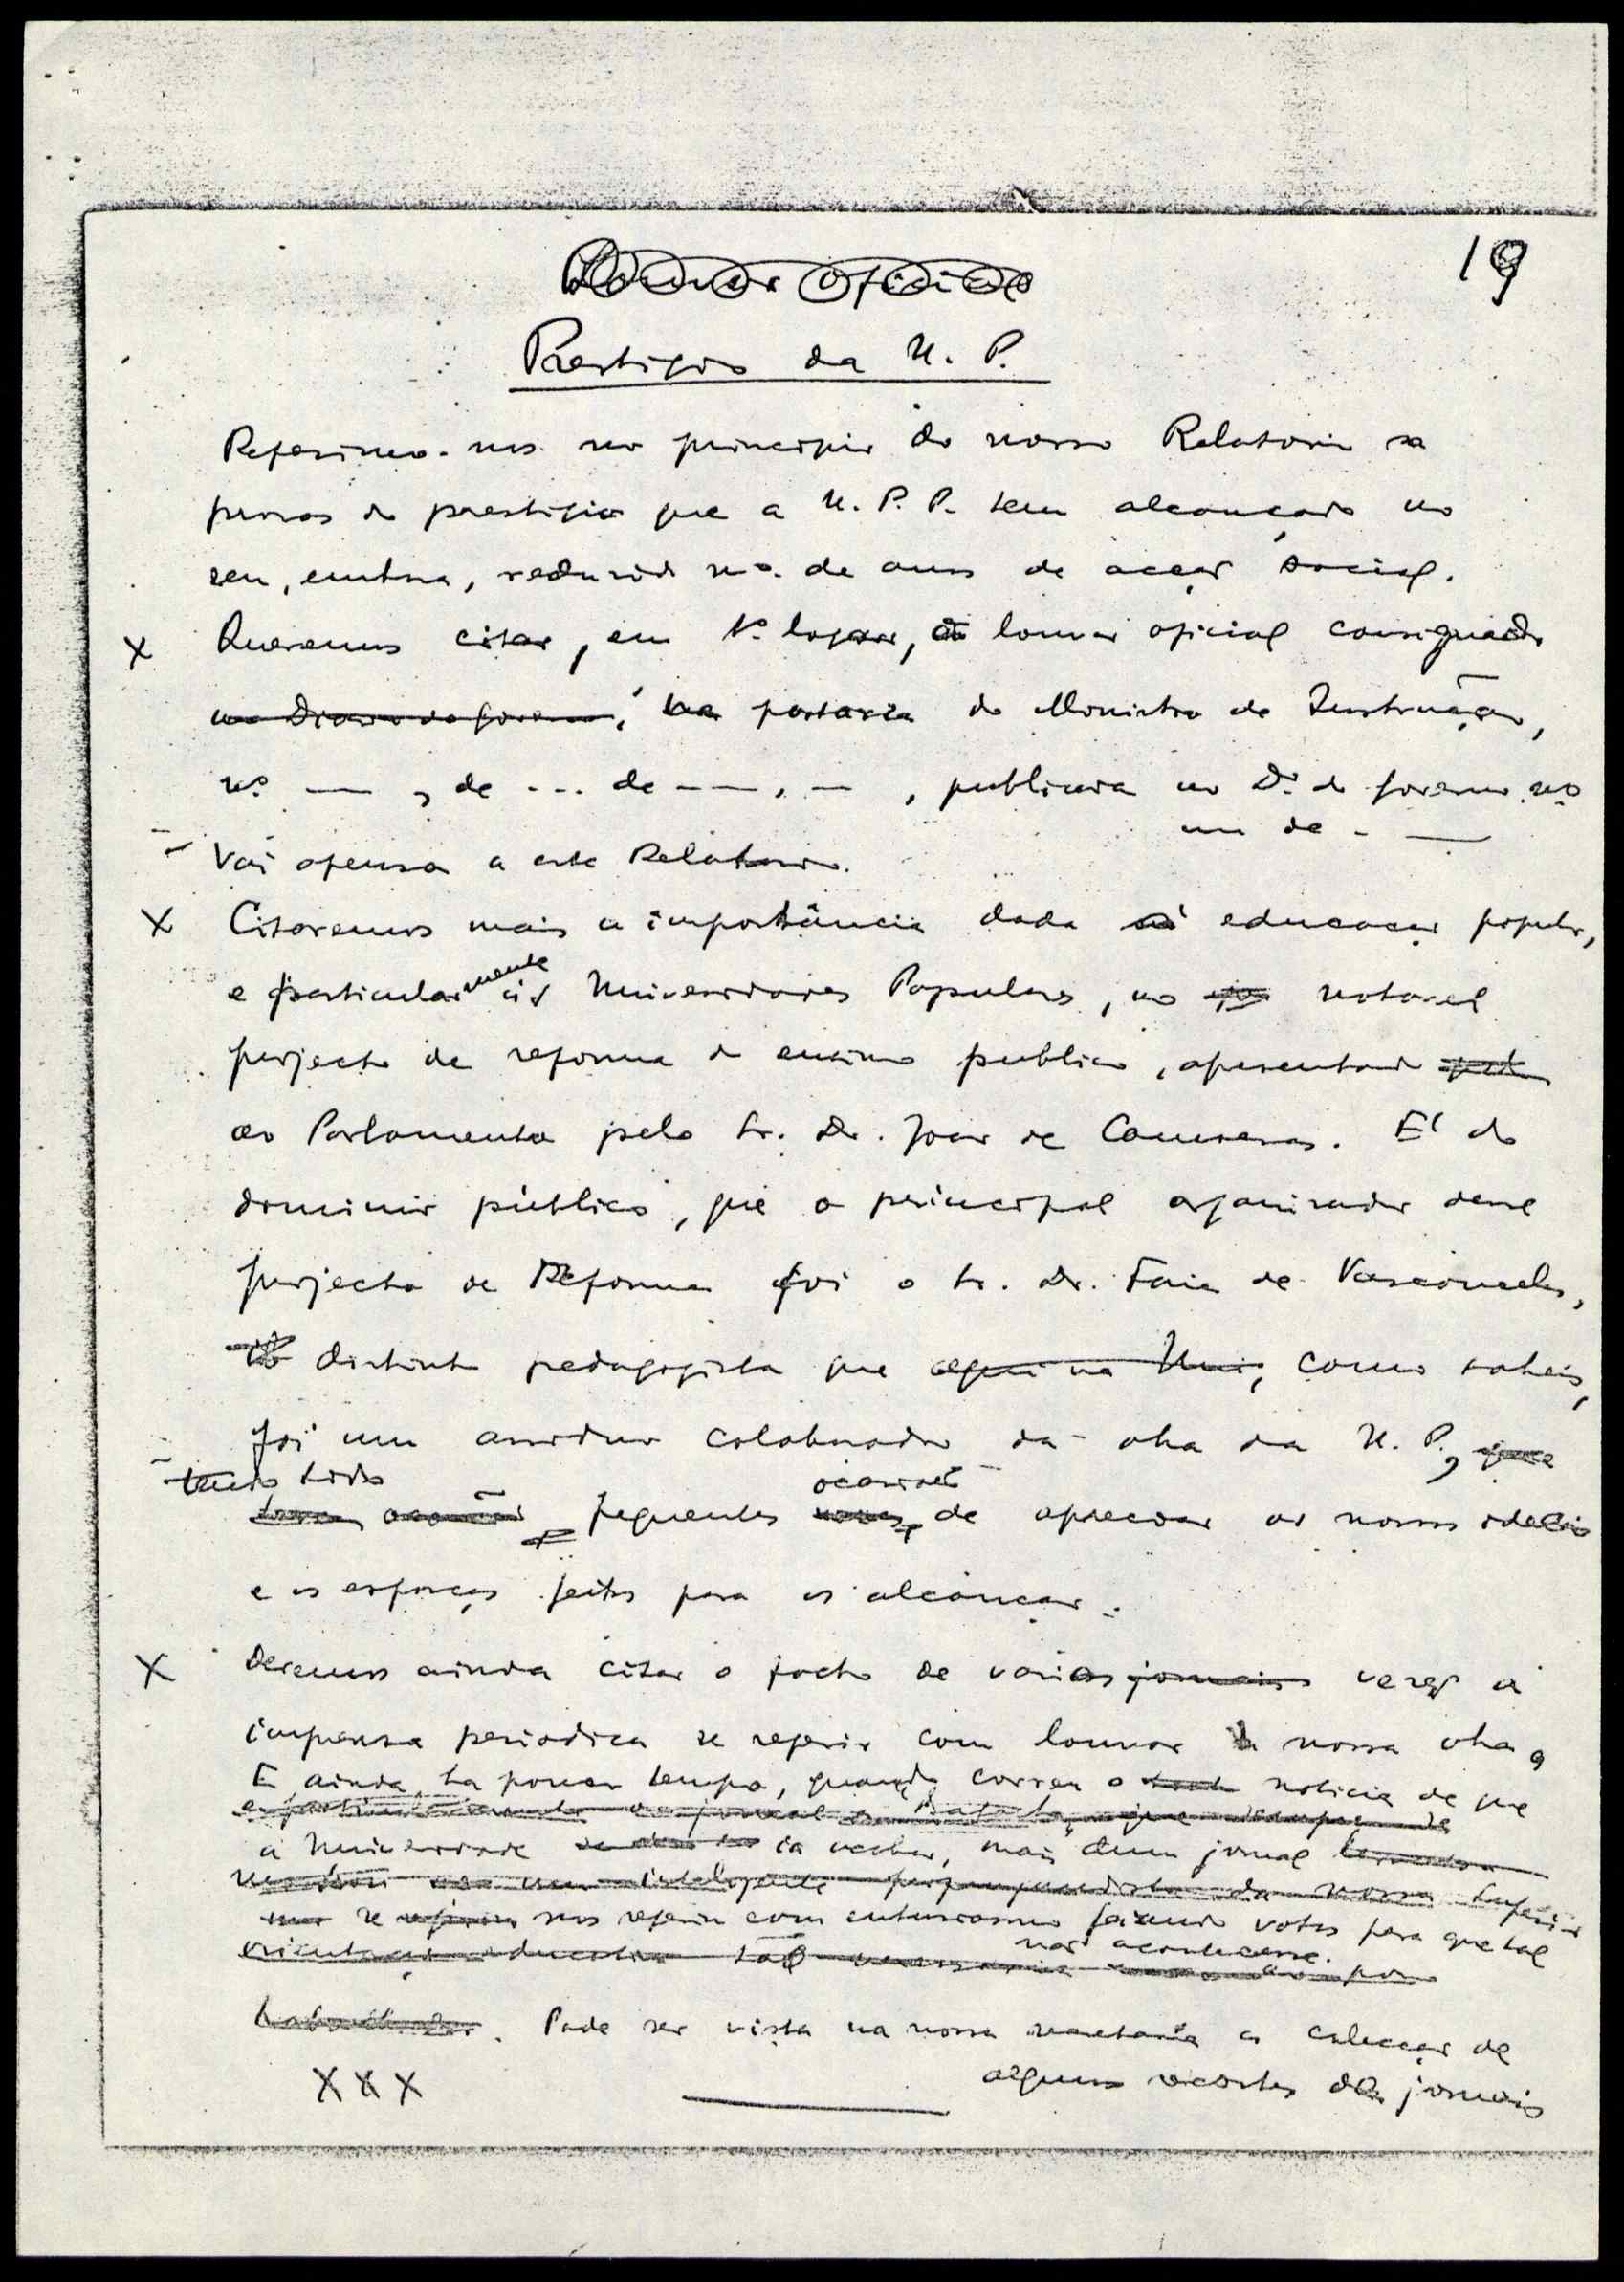 19
Louvor Oficial
Prestigio da U. P.
Referimo-nos no principio do nosso Relatorio a
provas de prestigio que a U. P. P. tem alcançado no
seu, embora, reduzido nº. de anos de acção social.
X Queremos citar, em 1º logar, o louvor oficial consignado
no Diario do Governo, na portaria do Ministro da Instrução,
nº. — , de --- de — — . — , publicada no D. do Governo nº
de - —
Vai apensa a este Relatorio.
X Citaremos mais a importância dada á educação popular,
e particularmente ás Universidades Populares, no notavel
projecto de reforma do ensino publico, apresentado
ao Parlamento pelo Sr. Dr. João de Camoesas. E' do
dominio público, que o principal organizador desse
projecto de Reforma foi o Sr. Dr. Faria de Vasconcelos,
distinto pedagogista que aqui na Uni, como sabeis,
foi um assiduo colaborador da obra da U. P., que
tendo tido ocasião
frequentes de apreciar os nossos ideais
e os esforços feitos para os alcançar.
X Devemos ainda citar o facto de varias jornais vezes a
imprensa periodica se referir com louvor á nossa obra,
E ainda ha pouco tempo, quando correu a noticia de que
e particularmente o jornal a Batalha, que sempre
a Universidade ia fechar, mais dum jornal
inteligente propagandista da nossa
se nos referiu com entusiasmo fazendo votos para que tal
não acontecesse.
orientação educativa tão necessaria
trabalhador. Pode ser vista na nossa secretaria a colecção de
alguns recortes de jornais
X X X